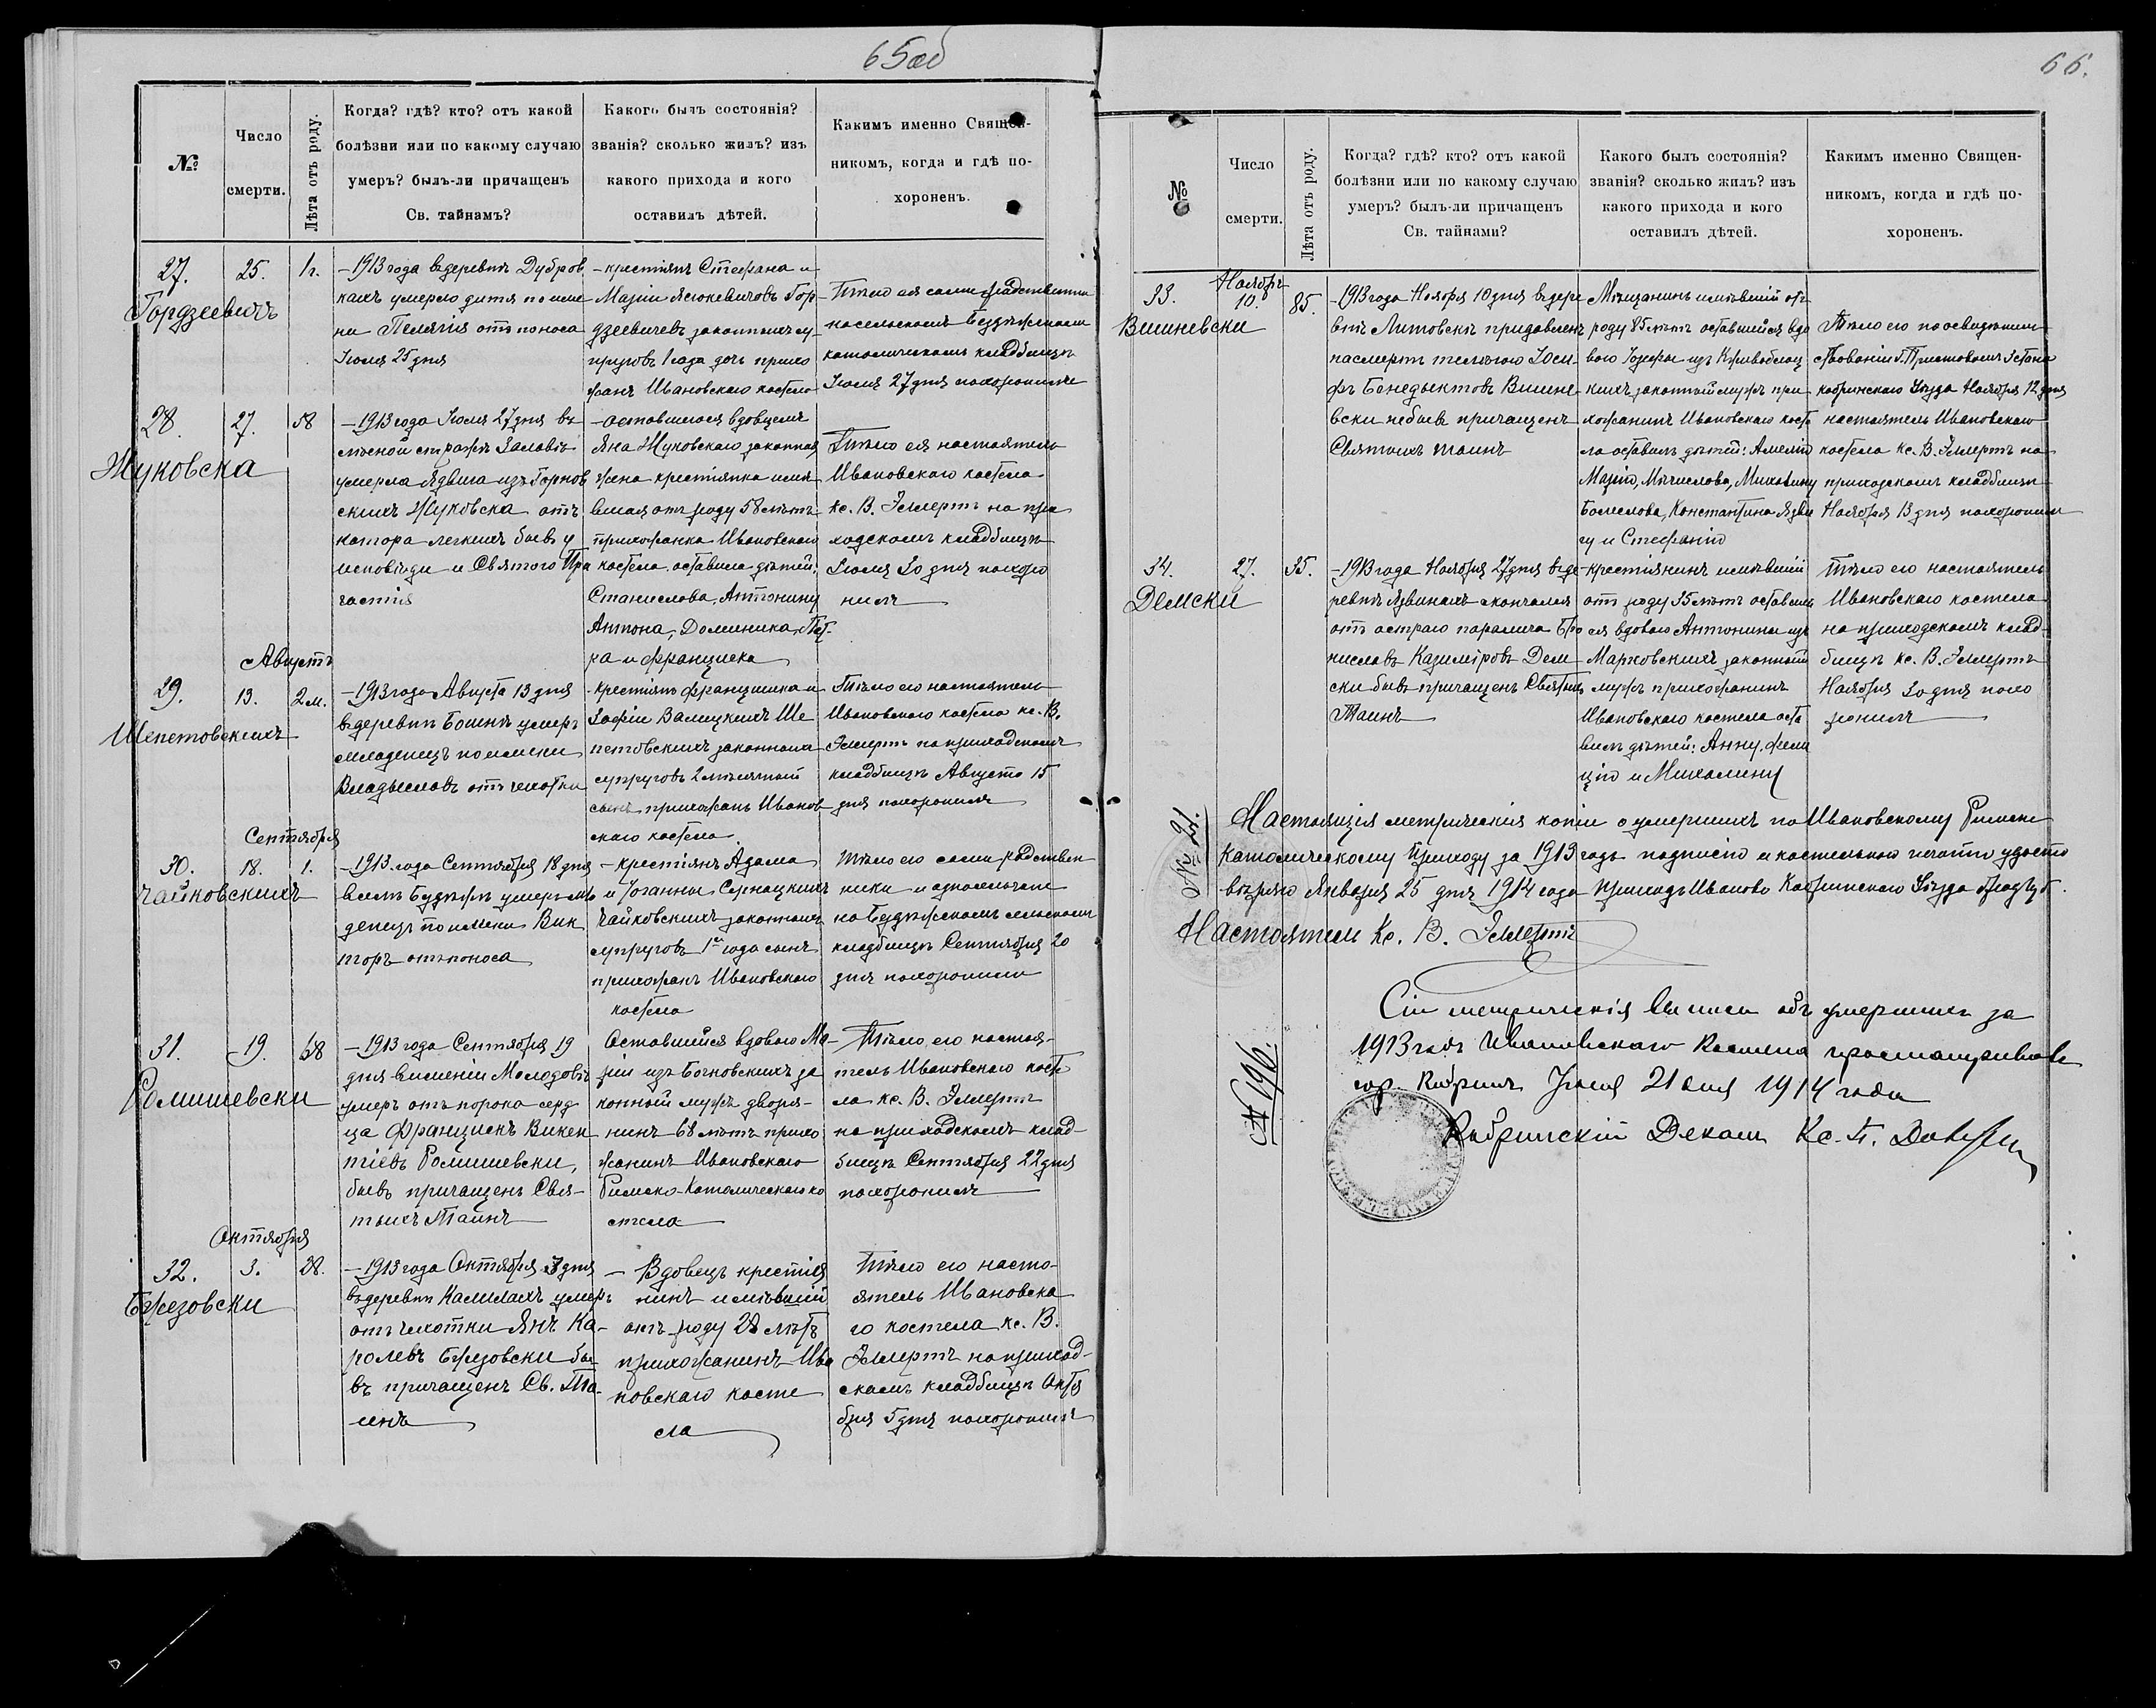 65об
№
Число
смерти.
Лѣта отъ роду.
Когда? гдѣ? кто? отъ какой
болѣзни или по какому случаю
умеръ? былъ-ли причащенъ
Св. тайнамъ?
Какого былъ состоянія?
званія? сколько жилъ? изъ
какого прихода и кого
оставилъ дѣтей.
Какимъ именно Священ-
никомъ, когда и гдѣ по-
хороненъ.
27.
Гордзеевичъ
25.
1г.
—1913 года въ деревнѣ Дубров
кахъ умерло дитя по име
ни Пелягія отъ поноса
Іюля 25 дня
—крестіянъ Стефана и
Маріи Ясюкевичовъ Гор
дзеевичевъ законныхъ су
пруговъ 1 года дочь прихо
жанъ Ивановскаго костела
Тѣло ея сами родственни
на сельскомъ Бездѣжскомъ
католическомъ кладбищѣ
Іюля 27 дня похоронили
28.
Жуковска
27.
58
—1913 года Іюля 27 дня въ
лѣсной стражѣ Заловіе
умерла Ядвига изъ Горнов
скихъ Жуковска отъ
катора легкихъ бывъ у
исповѣди и Святого При
частія
—оставшагося вдовцемъ
Яна Жуковскаго законная
жена крестіянка имѣ
вшая отъ роду 58 лѣтъ
прихожанка Ивановскаго
костела. оставила дѣтей:
Станислава, Антонину
Антона, Доминика, Пет-
ра и Франциска
Тѣло ея настоятель
Ивановскаго костела
кс. В. Эммертъ на при
ходскомъ кладбищѣ
Іюля 30 дня похоро
нилъ
Августъ
29.
Шепетовскихъ
13.
2 м.
—1913 года Августа 13 дня
въ деревнѣ Ботнѣ умеръ
младенецъ по имени
Владыславъ отъ чехотки
-крестіянъ Францишка и
Зофіи Валицкихъ Ше
петовскихъ законныхъ
супруговъ 2 мѣсячный
сынъ прихожанъ Иванов
скаго костела
Тѣло его настоятель
Ивановскаго костела кс. В.
Эммертъ на приходскомъ
кладбищѣ Августа 15
дня похоронилъ
Сентября
30.
Чайковскихъ
18.
1.
—1913 года Сентября 18 дня
въ селѣ Бездѣжѣ умеръ мла
денецъ по имени Вик
торъ отъ поноса
—крестіянъ Адама
и Іоганны Сернацкихъ
Чайковскихъ законныхъ
супруговъ 1го года сынъ
прихожанъ Ивановскаго
костела
Тѣло его сами родствен
ники и односельчане
на Бездѣжскомъ сельскомъ
кладбищѣ Сентября 20
дня похоронили
31.
Ромишевски
19.
68
—1913 года Сентября 19
дня въ имѣніи Молодовѣ
умеръ отъ порока серд
ца Францискъ Викен
тіевъ Ромишевски,
бывъ причащенъ Свя-
тыхъ Таинъ
Оставшійся вдовою Ма-
ріи изъ Бочковскихъ за
конный мужъ дворя-
нинъ 68 лѣтъ прихо
жанинъ Ивановскаго
Римско-Католическаго ко
стела
Тѣло его настоя-
тель Ивановскаго косте
ла кс. В. Эммертъ
на приходскомъ клад-
бищѣ Сентября 22 дня
похоронилъ
Октября
32.
Бржезовски
3.
28.
—1913 года Октября 3 дня
въ деревнѣ Калилахъ умеръ
отъ чехотки Янъ Ка-
ролевъ Бржезовски бы-
въ причащенъ Св. Та-
инъ
— Вдовецъ крестія
нинъ имѣвшій
отъ роду 28 лѣтъ
прихожанинъ Ива
новскаго косте
ла
Тѣло его насто-
ятель Ивановска
го костела кс. В.
Эммертъ на приход-
скомъ кладбищѣ Октя
бря 5 дня похоронилъ
66.
№
Число
смерти.
Лѣта отъ роду.
Когда? гдѣ? кто? отъ какой
болѣзни или по какому случаю
умеръ? былъ-ли причащенъ
Св. тайнами?
Какого былъ состоянія?
званія? сколько жилъ? изъ
какого прихода и кого
оставилъ дѣтей.
Какимъ именно Священ-
никомъ, когда и гдѣ по-
хороненъ.
33.
Вишневски
Ноябрь
10.
85.
—1913 года Ноября 10 дня въ дере
внѣ Литовскѣ придавленъ
насмерть телѣгою Іоси-
фъ Бенедыктовъ Вишне
вски небывъ причащенъ
Святыхъ таинъ
Мѣщанинъ имѣвшій отъ
роду 85 лѣтъ оставшійся вдо
вою Іозефы изъ Кривоблоц
кихъ законный мужъ при-
хожанинъ Ивановскаго косте
ла оставилъ дѣтей: Амелію
Марію, Мѣчислова, Михалину
Болеслова, Константина Ядви
гу и Стефанію
Тѣло его по освидѣтель
ствованіи г. Приставомъ 3 стана
кобринскаго Уѣзда Ноября 12 дня
настоятель Ивановскаго
костела кс. В. Эммертъ на
приходскомъ кладбищѣ
Ноября 13 дня похоронилъ
34.
Демски
27.
35.
—1913 года Ноября 27 дня въ де
ревнѣ Язвинахъ скончался
отъ остраго паралича Бро
ниславъ Казиміровъ Дем
ски бывъ причащенъ Святыхъ
Таинъ
-крестіянинъ имѣвшій
отъ роду 35 лѣтъ оставши
ся вдовою Антонины изъ
Марковскихъ законный
мужъ прихожанинъ
Ивановскаго костела оста
вилъ дѣтей: Анну, Фели
цію и Михалину
Тѣло его настоятель
Ивановскаго костела
на приходскомъ клад-
бищѣ кс. В. Эммертъ
Ноября 30 дня похо
ронилъ
№ 21.
Настоящія метрическія копіи о умершихъ по Ивановскому Римско
католическому Приходу за 1913 годъ подписію и костельною печатію удосто
вѣряю Января 25 дня 1914 года Приходъ Иваново Кобринскаго Уѣзда Грод. губ.
Настоятель Кс. В. Эммертъ
№ 196.
Сіи метрическія выписи объ умершихъ за
1913 годъ Ивановскаго Костела просматривалъ
гор. Кобринъ Іюня 21 дня 1914 года
Кобринскій Деканъ Кс.